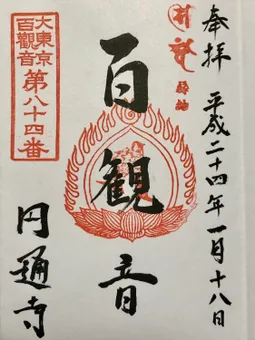 奉拝
平成二十四年一月十八日
百観音
大東京
百観音
第八十四番
円通寺